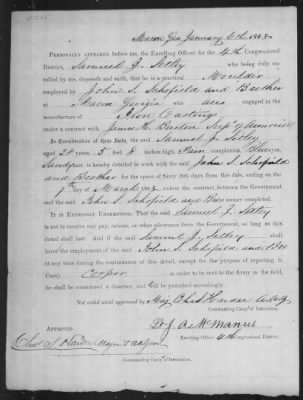 Macon Geo January 6th 1863
PERSONALLY APPEARED before me, the Enrolling Officer for the 4th Congressional
District, Samuel J. who being duly
ed by me, deposeth and saith, that he is a practical Moulder
employed by John S. Schofield and Brother
at Macon Georgia who are engaged in the
manufacture of Iron Castings
under a contract with James H. Burton Supt Armories
In Consideration of these facts, the said Samuel J.
aged 20 years, 5 feet 8 inches, complexion,
hair, is hereby detailed to work with the said John S. Schofield
and Brother for the space of Sixty (60) days from this date, ending on the
7th of March 1863 unless the contract between the Government
and the said John S. Schofield and Bro sooner terminate.
IT IS EXPRESSLY UNDERSTOOD, That the said Samuel J.
is not to receive any pay, rations, or clothing allowance from the Government, so long as this
detail shall last: And if the said Samuel J. shall
leave the employment of the said John S. Schofield and Bro
at any time during the continuance of this detail, except for the purpose of reporting to
Camp Cooper in order to be sent to the Army in the field,
he shall be considered a deserter, and be proceeded against accordingly.
Not valid until approved by Maj Chas J Harder
Commanding Camp of Instruction.
D. J. A. McManus
Enrolling Officer 4th Congressional District.
APPROVED.
Chas J Harder Major
Commanding Camp of Instruction.